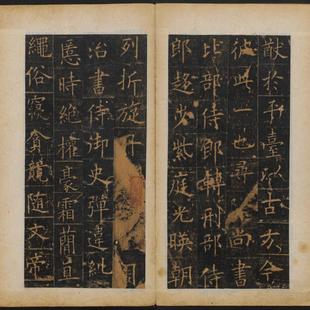 猷於平臺以古方今
彼此一也尋尚書
比部侍郎轉刑部侍
郎趍步紫庭光暎朝
列折旋丹
治書侍御史彈違糺
慝時絕權豪霜簡直
繩俗寢貪饕隨文帝